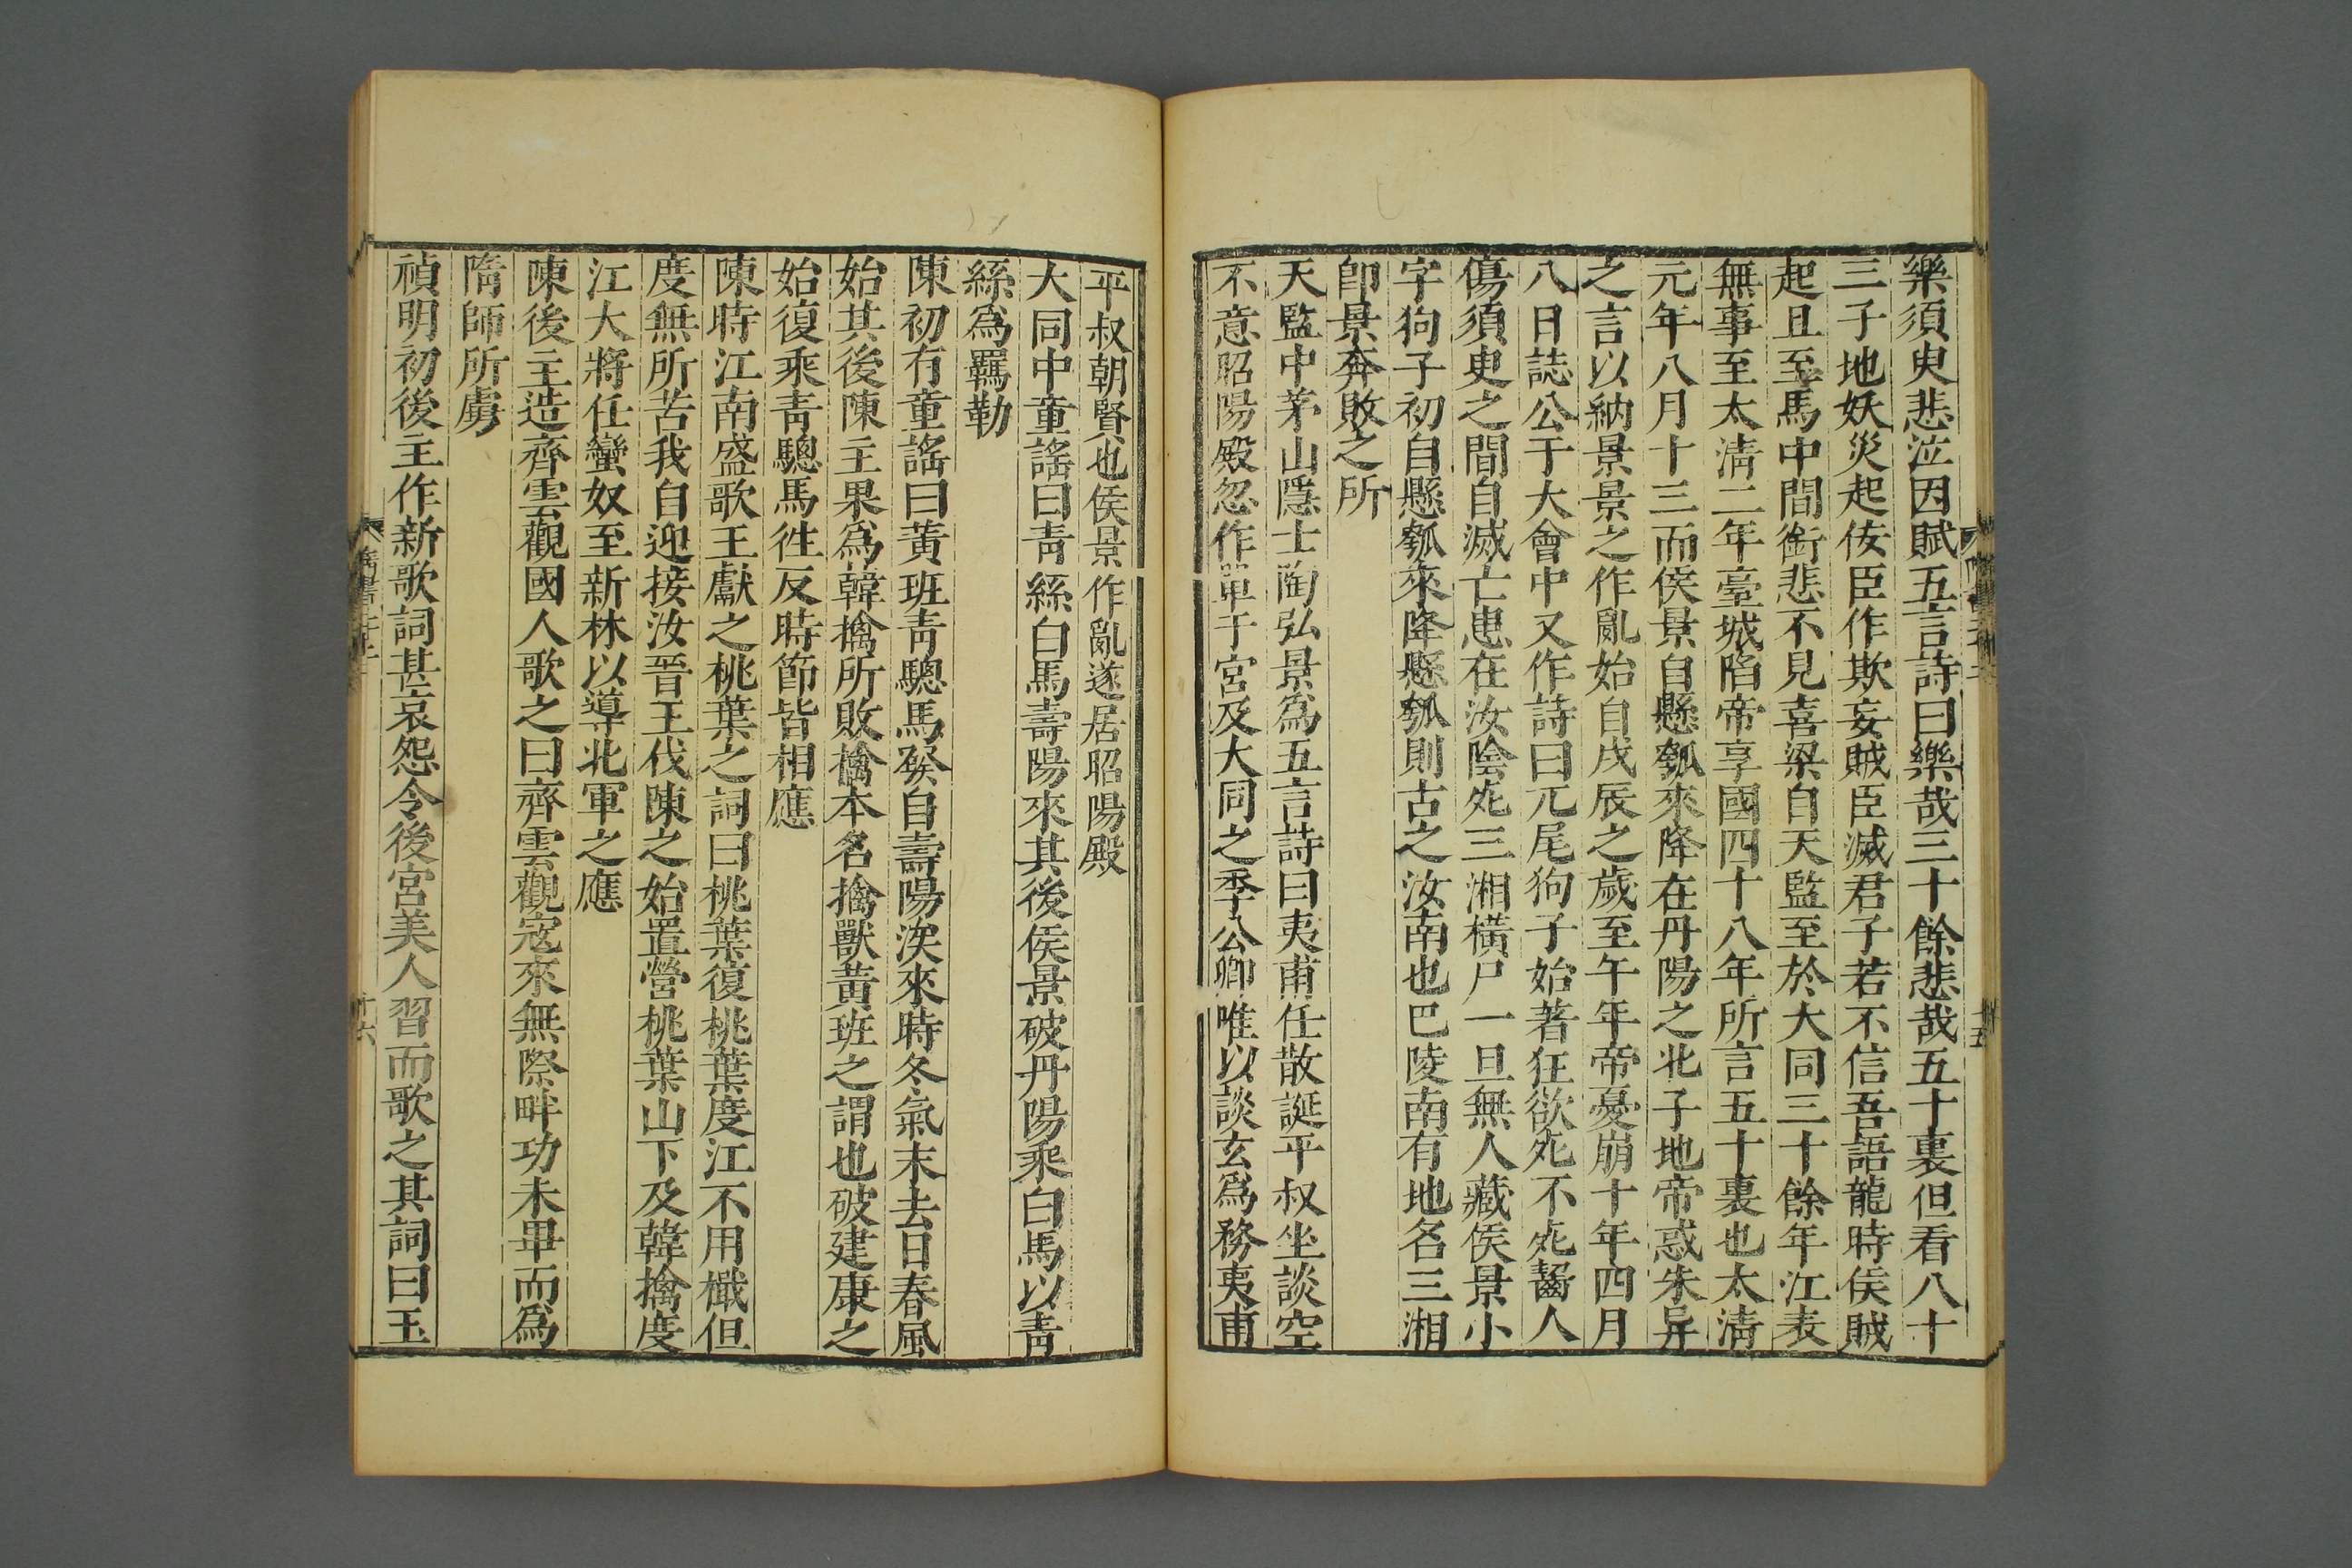 樂須臾悲泣因賦五言詩曰樂哉三十餘悲哉五十裏但看八十
三子地妖災起佞臣作欺妄賊臣滅君子若不信吾語龍時侯賊
起且至馬中間銜悲不見喜梁自天監至於大同三十餘年江表
無事至太清二年臺城陷帝享國四十八年所言五十裏也太清
元年八月十三而侯景自懸瓠來降在丹陽之北子地帝惑朱异
之言以納景景之作亂始自戊辰之歲至午年帝憂崩十年四月
八日誌公于大會中又作詩曰兀尾狗子始著狂欲死不死齧人
傷須臾之間自滅亡患在汝陰死三湘橫尸一旦無人藏侯景小
字狗子初自懸瓠來降懸瓠則古之汝南也巴陵南有地名三湘
卽景奔敗之所
天監中茅山隱士陶弘景爲五言詩曰夷甫任散誕平叔坐談空
不意昭陽殿忽作單于宮及大同之季公卿唯以談玄爲務夷甫
十五
平叔朝賢也侯景作亂遂居昭陽殿
大同中童謠曰青絲白馬壽陽來其後侯景破丹陽乘白馬以青
絲爲羈勒
陳初有童謠曰黃班青驄馬發自壽陽涘來時冬氣末去日春風
始其後陳主果爲韓擒所敗擒本名擒獸黃班之謂也破建康之
始復乘青驄馬往反時節皆相應
陳時江南盛歌王獻之桃葉之詞曰桃葉復桃葉度江不用檝但
度無所苦我自迎接汝晉王伐陳之始置營桃葉山下及韓擒度
江大將任蠻奴至新林以導北軍之應
陳後主造齊雲觀國人歌之曰齊雲觀寇來無際畔功未畢而爲
隋師所虜
禎明初後主作新歌詞甚哀怨令後宮美人習而歌之其詞曰玉
十六